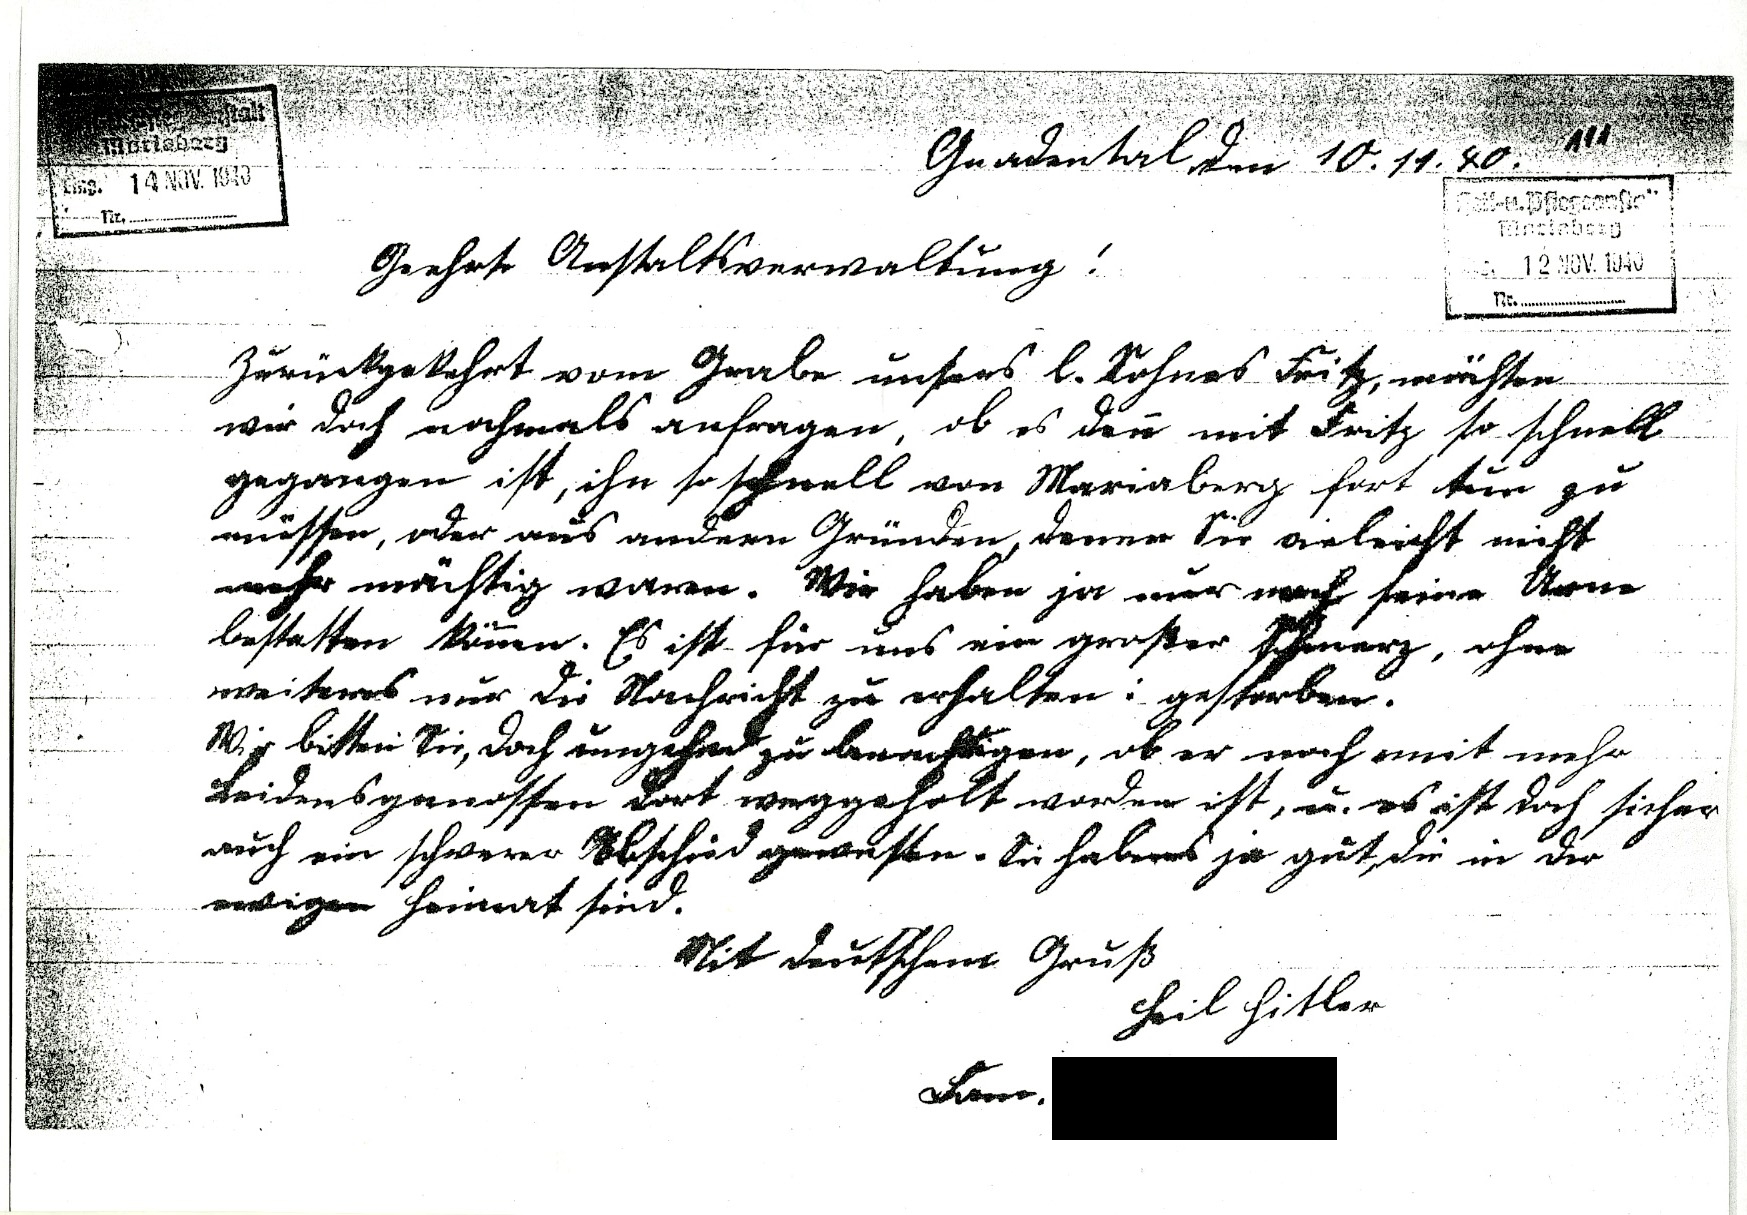 Mariaberg
Eing. 14 NOV. 1940
Nr.
Gnadental den 10.11.40.
Heil- u. Pflegeanst
Mariaberg
12 NOV. 1940
Nr.
Geehrte Anstaltsverwaltung!
Zurückgekehrt vom Grabe unsers l. Sohnes Fritz, möchten
wir doch nochmals anfragen, ob es den̄ mit Fritz so schnell
gegangen ist, ihn so schnell von Mariaberg fort tun zu
müssen, oder aus andern Gründen, denen Sie vieleicht nicht
mehr mächtig waren. Wir haben ja nur noch seine Urne
bestatten kön̄en. Es ist für uns ein großer Schmerz, ohne
weiteres nur die Nachricht zu erhalten: gestorben.
Wir bitten Sie, doch umgehend zu, ob er noch mit mehr
Leidensgenossen dort weggeholt worden ist, u. es ist doch sicher
auch ein schwerer Abschied gewesen. Sie haben es ja gut, die in der
ewigen Heimat sind.
Mit deutschem Gruß
Heil Hitler
Fam.